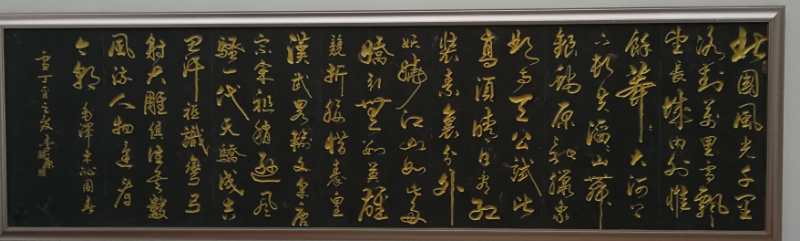 北国风光千里
冰封万里雪飘
望长城内外惟
馀莽大河上
下顿失滔山舞
银蛇原驰蜡象
欲与天公试比
高须晴日看红
装素裹分外
妖娆江山如此多
娇引无数英雄
竞折腰惜秦皇
汉武略输文采唐
宗宋祖稍逊风
骚一代天骄成吉
思汗只识弯弓
射大雕俱往矣数
风流人物还看
今朝 毛泽东沁园春
雪丁酉之